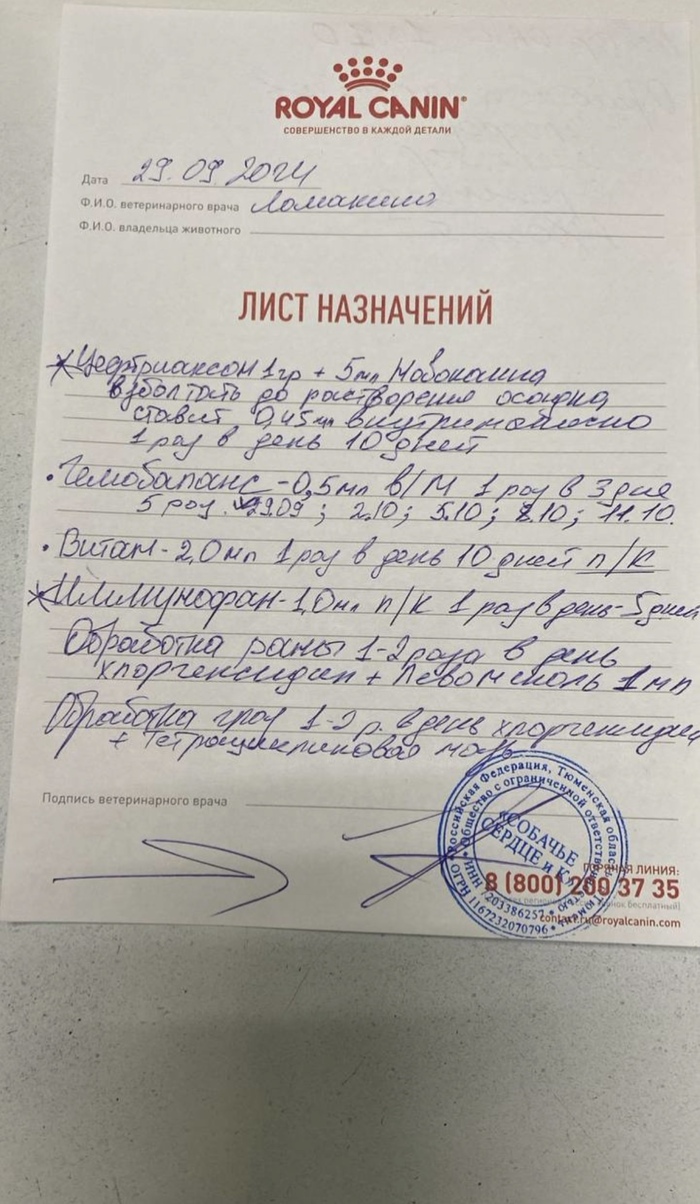 ROYAL CANIN
СОВЕРШЕНСТВО В КАЖДОЙ ДЕТАЛИ
Дата 29.09.2024
Ф.И.О. ветеринарного врача Ломакина
Ф.И.О. владельца животного
ЛИСТ НАЗНАЧЕНИЙ
*Цефтриаксон 1гр + 5мл Новокаина
взболтать до растворения осадка
ставит 0,45мл внутримышечно
1 раз в день 10 дней
• Гемобаланс - 0,5мл в/м 1 раз в 3 дня
5 раз. 29.09; 2.10; 5.10; 8.10; 11.10.
• Витам - 2,0мл 1 раз в день 10 дней п/к
*Иммунофан - 1,0мл п/к 1 раз в день - 5 дней
Обработка раны 1-2 раза в день
хлоргексидин + Левомеколь 1мл
Обработка глаз 1-2 р. в день хлоргексидин
+ Тетрациклиновая мазь
Подпись ветеринарного врача
Российская Федерация, Тюменская область
Общество с ограниченной ответственностью
«СОБАЧЬЕ
СЕРДЦЕ и К»
ИНН 7203386257
ОГРН 1167232070796
ГОРЯЧАЯ ЛИНИЯ:
8 (800) 200 37 35
contact.ru@royalcanin.com